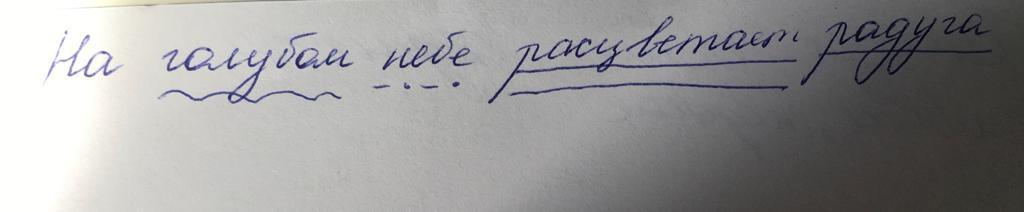 На голубом небе расцветает радуга